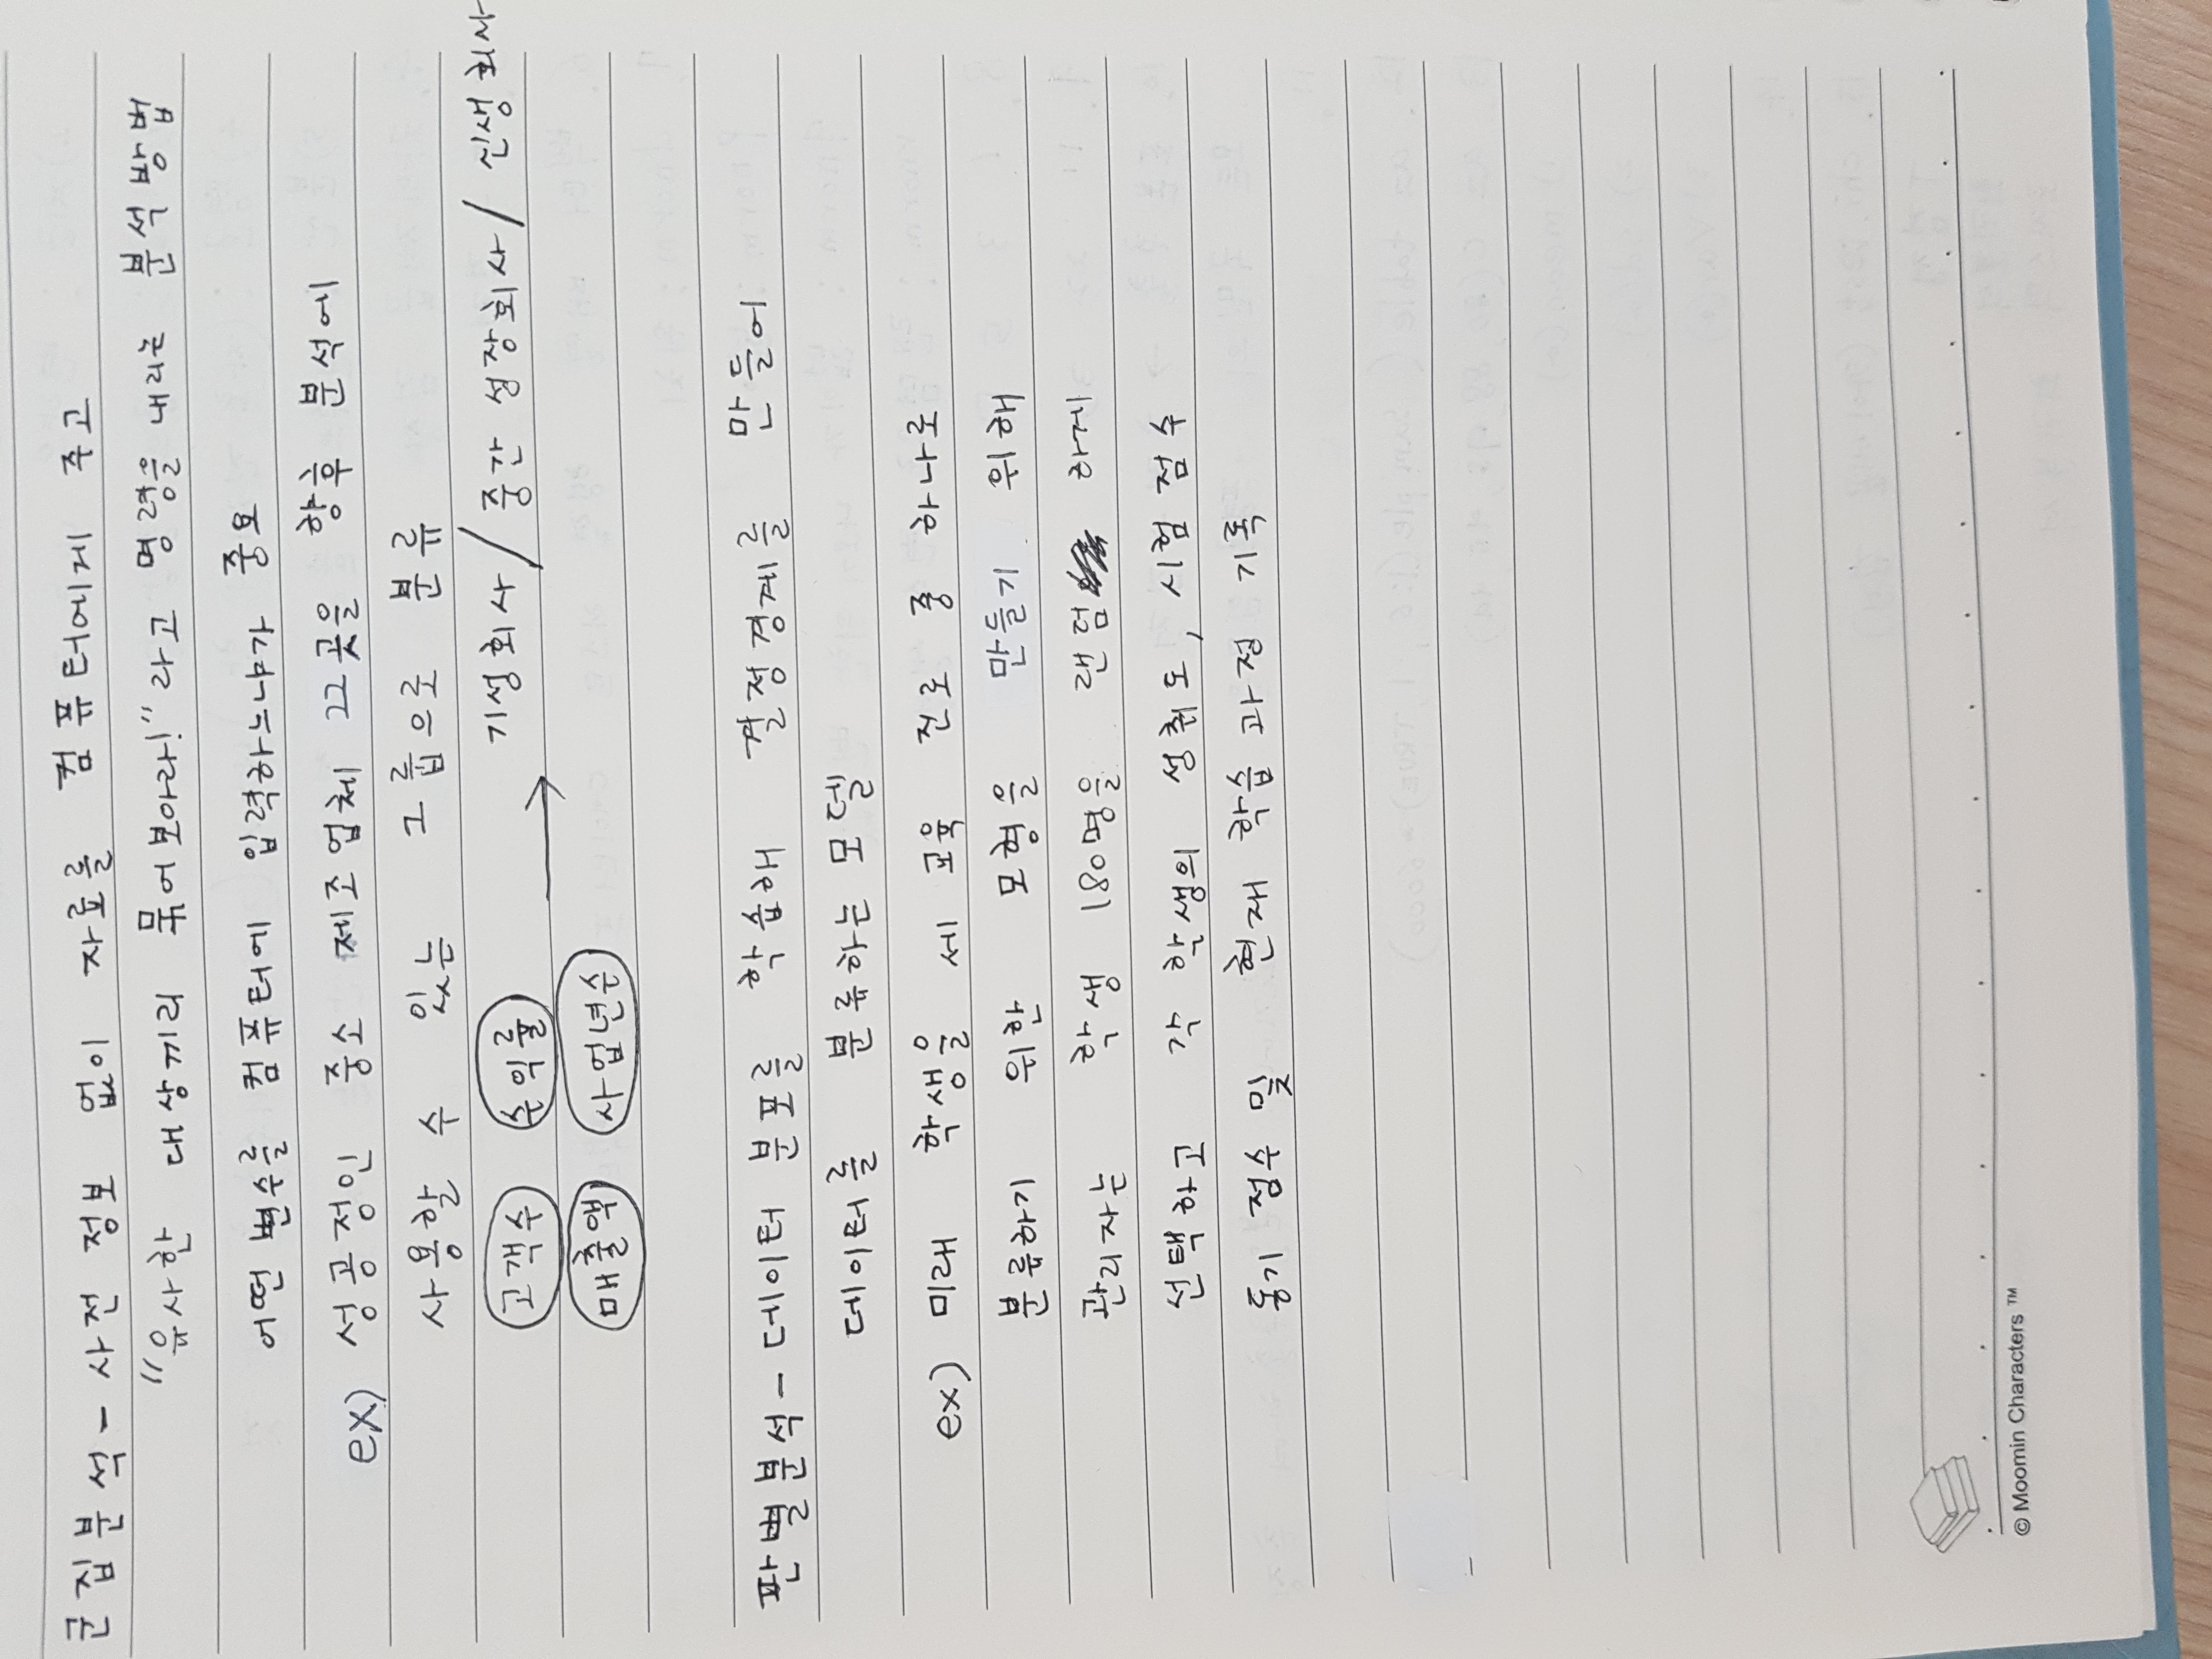 군집분석 - 사전 정보 없이 자료를 컴퓨터에게 주고
"유사한 대상끼리 묶어보아라!"라고 명령을 내리는 분석방법
어떤 변수를 컴퓨터에 입력하느냐가 중요
ex) 성공정인 중소 제조업체 22곳을 향후 분석에
사용할 수 있는 그룹으로 분류
고객수 수익률 → 기성회사 / 중간 성장회사 / 신생회사
매출액 사업년수
판별분석 - 데이터 분포를 학습해 결정경계를 만들어
데이터를 분류하는 모델
ex) 미래 학생을 세 교육 진로 중 하나로
분류하기 위한 모형을 만들기 위해
관리자는 학생 180명을 랜덤 하게
선택하고 각 학생의 성취도, 시험 점수
동기 점수 및 현재 학습 과정 기록
© Moomin Characters ™